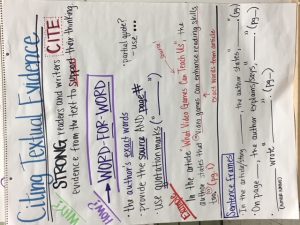 Citing Textual Evidence
STRONG readers and writers CITE
evidence from the text to support their thinking.
WHAT?
HOW?
→ WORD-FOR-WORD
• the author's exact words
• provide the source AND page #
• use quotation marks (" ")
• partial quote?
- use ...
EXAMPLE:
In the article "What Video Games Can Teach Us" the
author states that "video games can enhance reading skills
too" (pg. 1)
exact words from article
Sentence Frames
• In the article/story , the author states, " ." (pg. )
• On page , the author explains/says, " ."
• wrote " ." (pg. )